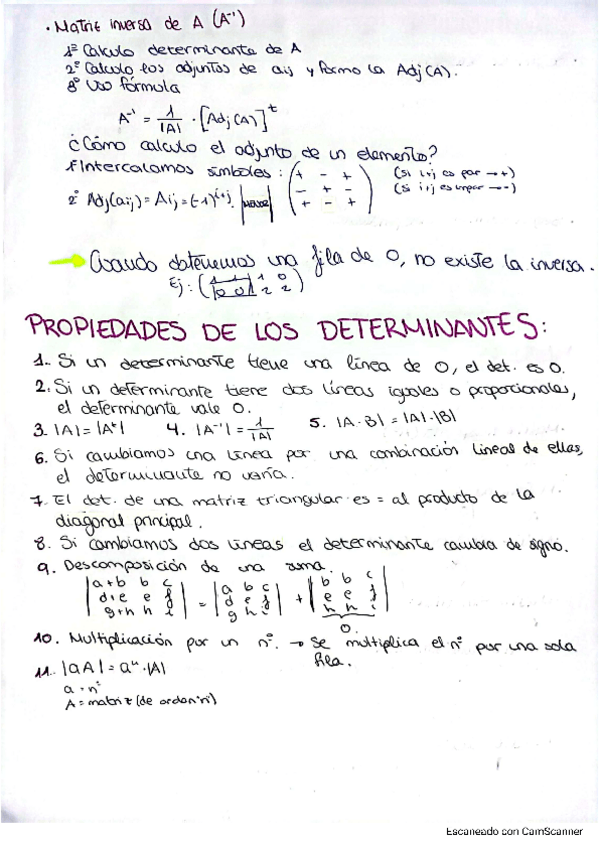 · Matriz inversa de A (A⁻¹)
1º Calculo determinante de A
2º Calculo los adjuntos de aij y formo la Adj(A).
3º Uso fórmula
A⁻¹ = 1/|A| · [Adj(A)]ᵗ
¿Cómo calculo el adjunto de un elemento?
1º Intercalamos símbolos: (+ - + (si i+j es par → +)
- + - (si i+j es impar → -)
+ - +)
2º Adj(aij) = Aij = (-1)ⁱ⁺ʲ · | |
→ Cuando obtenemos una fila de 0, no existe la inversa.
Ej: (1 1 | 1 0
0 0 | 2 2)
PROPIEDADES DE LOS DETERMINANTES:
1. Si un determinante tiene una línea de 0, el det. es 0.
2. Si un determinante tiene dos líneas iguales o proporcionales,
el determinante vale 0.
3. |A| = |Aᵗ| 4. |A⁻¹| = 1/|A| 5. |A·B| = |A|·|B|
6. Si cambiamos una línea por una combinación lineal de ellas,
el determinante no varía.
7. El det. de una matriz triangular es = al producto de la
diagonal principal.
8. Si cambiamos dos líneas el determinante cambia de signo.
9. Descomposición de una suma.
|a+b b c| |a b c| |b b c|
|d+e e f| = |d e f| + |e e f|
|g+h h i| |g h i| |h h i|
0.
10. Multiplicación por un nº. → Se multiplica el nº por una sola
fila.
11. |aA| = aⁿ·|A|
a = nº
A = matriz (de orden "n")
Escaneado con CamScanner